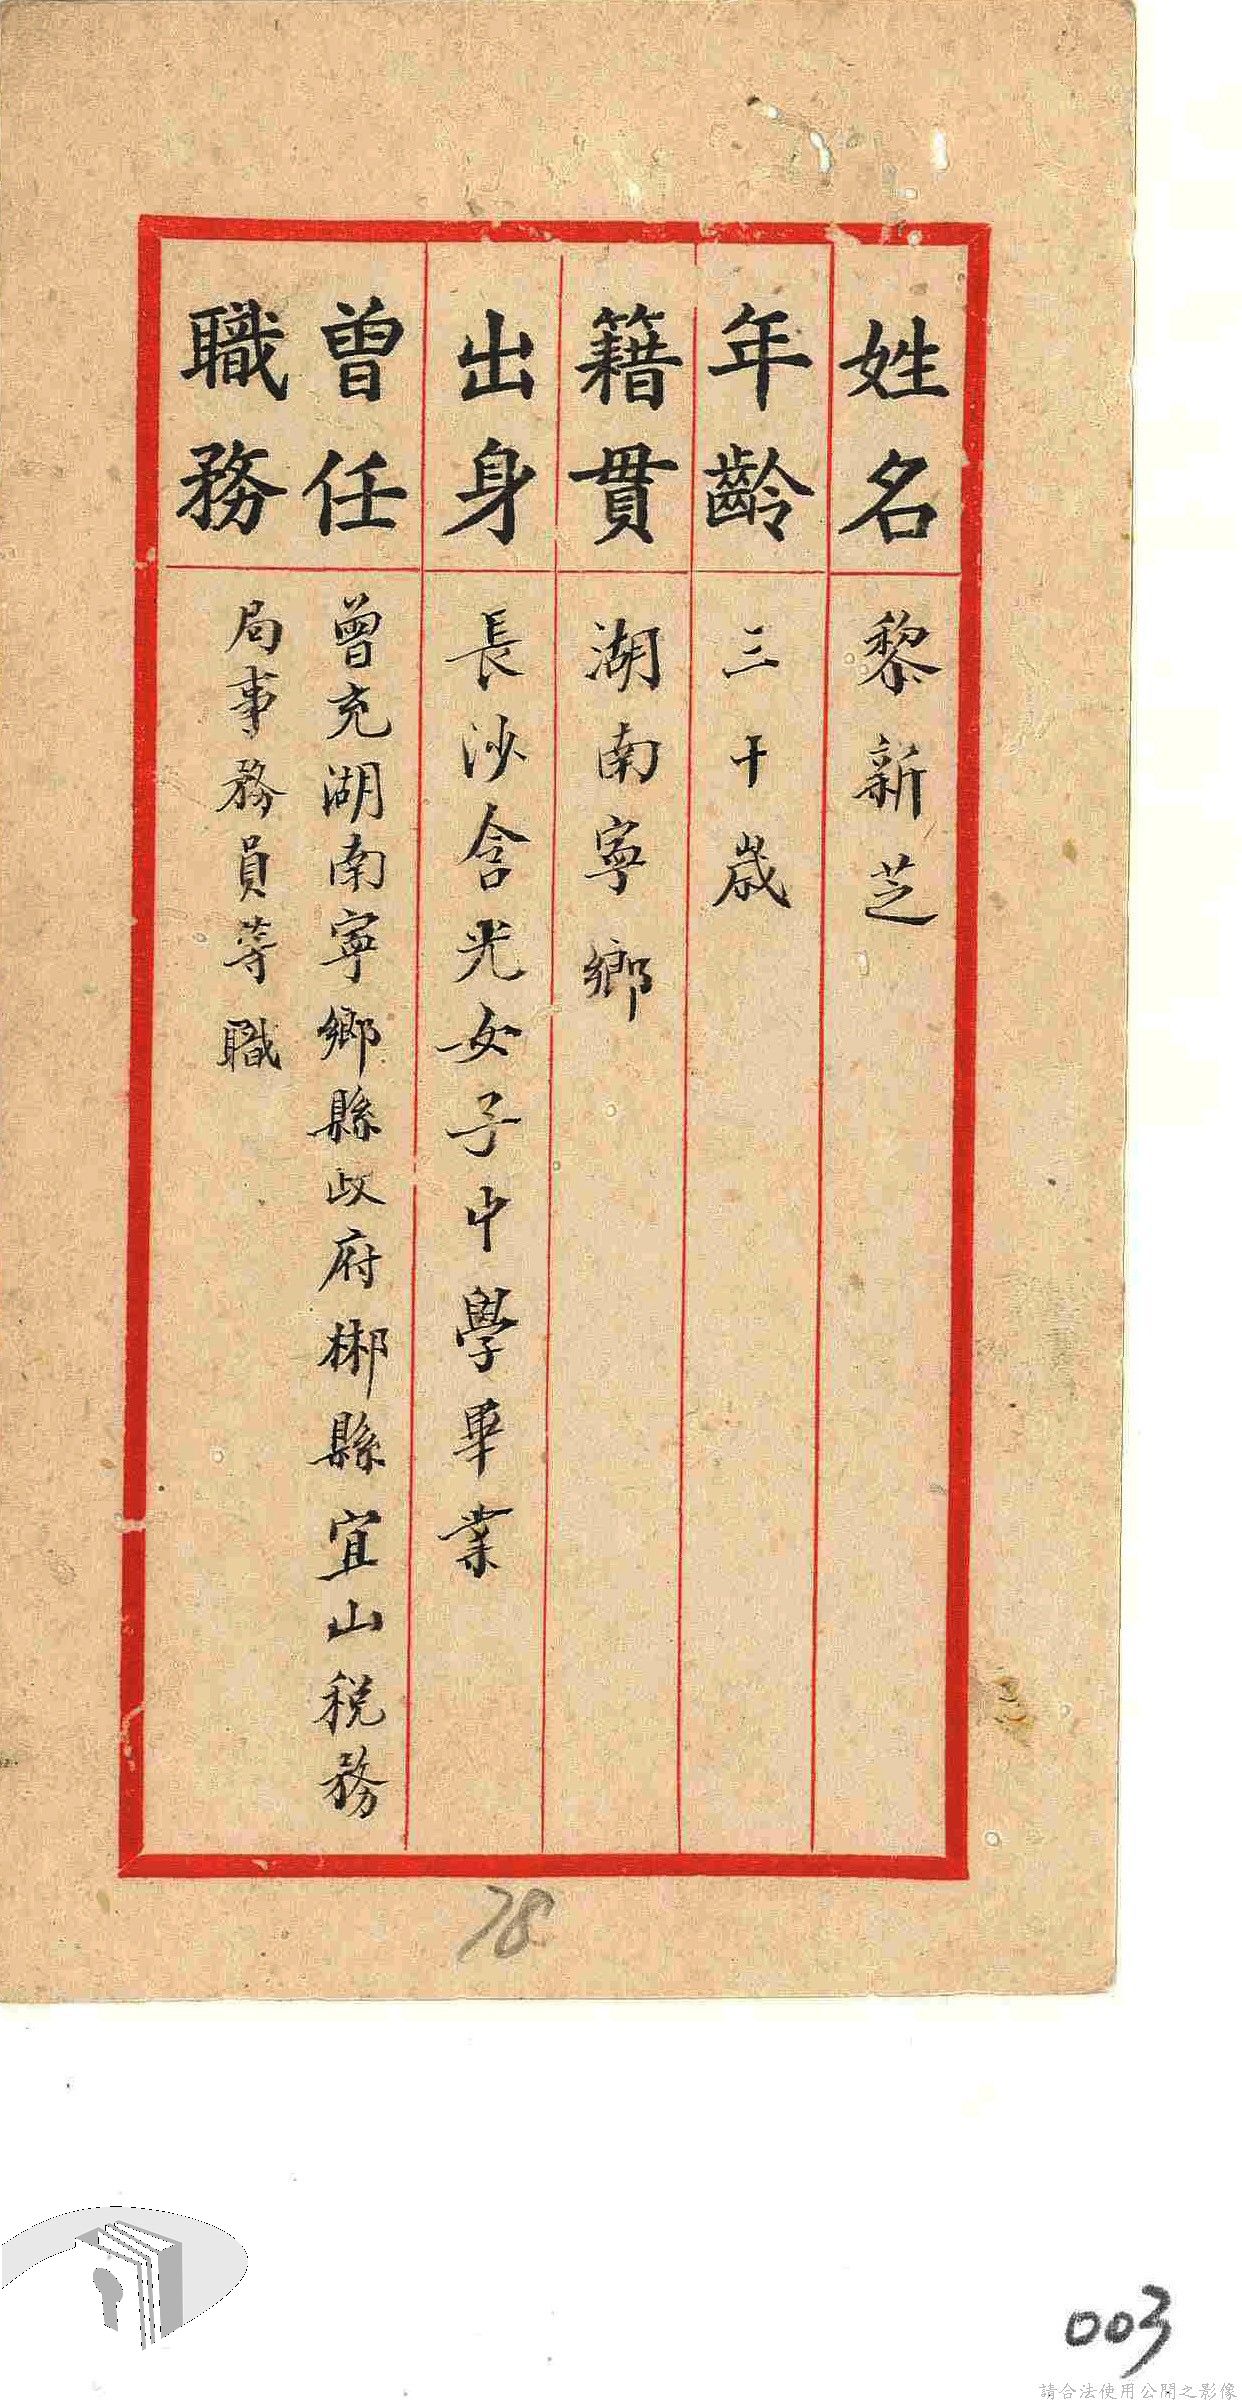 姓名 黎新芝
年齡 三十歲
籍貫 湖南寧鄉
出身 長沙含光女子中學畢業
曾任職務 曾充湖南寧鄉縣政府郴縣宜山稅務
局事務員等職
78
003
請合法使用公開之影像